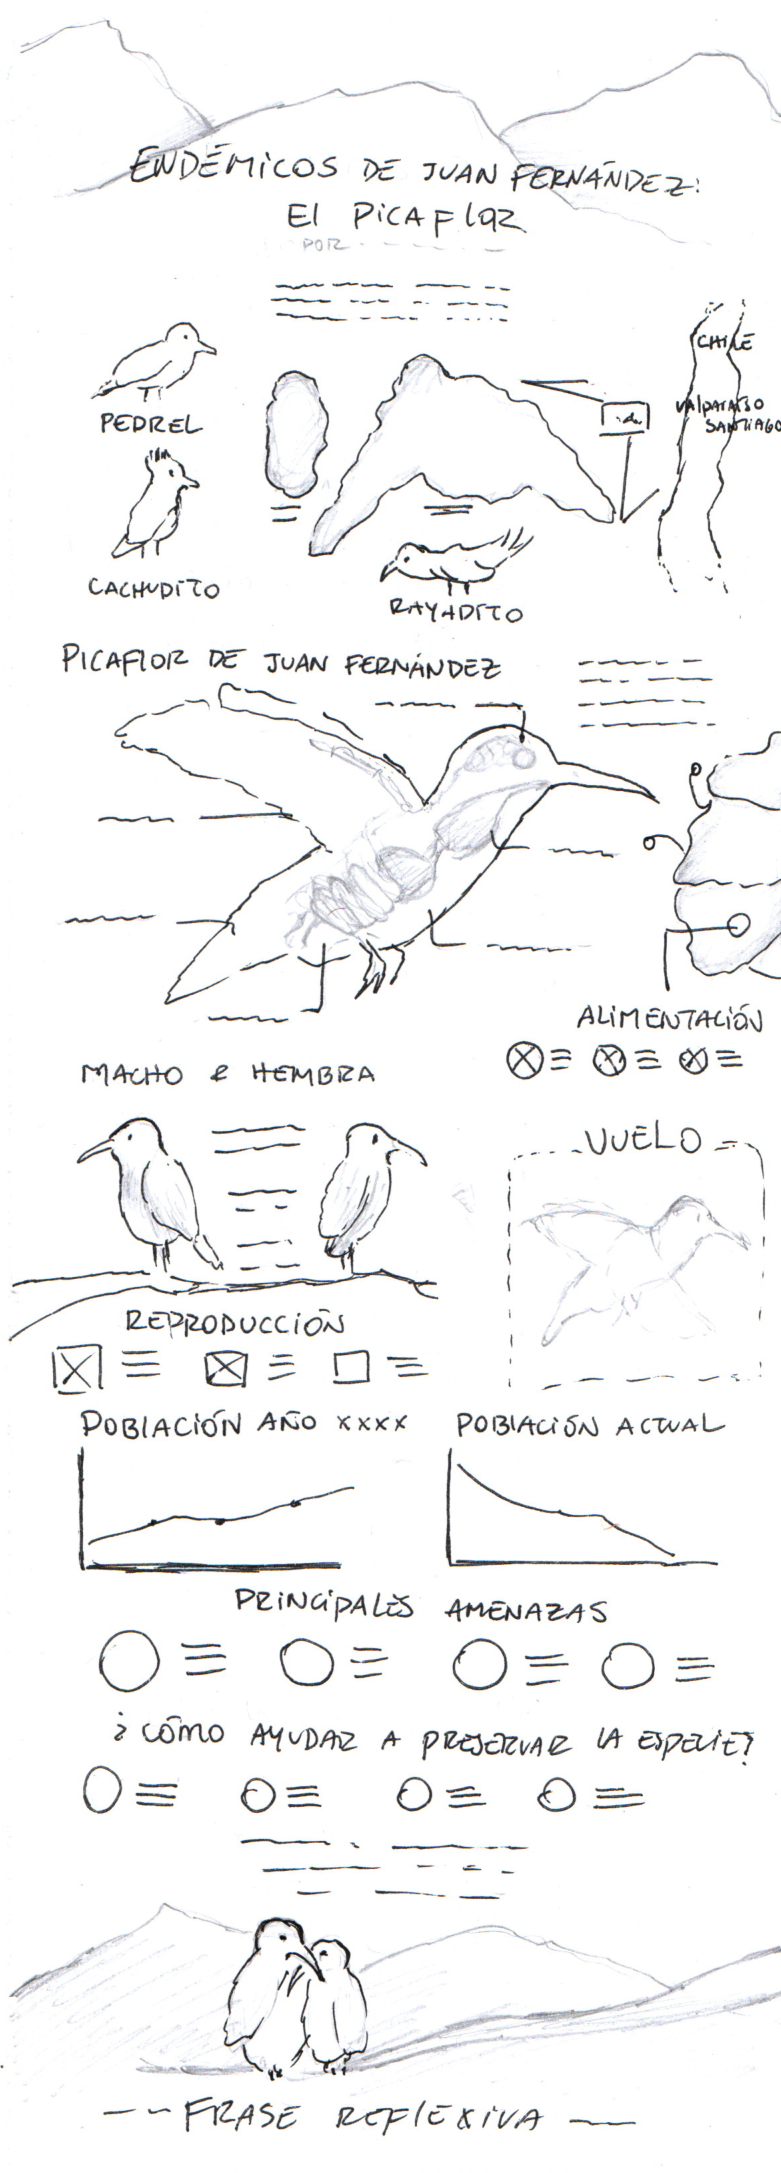 ENDÉMICOS DE JUAN FERNÁNDEZ:
El PICAFlOR
POR
CHILE
PEDREL
VAlPARAíSO
SANTIAGO
CACHUDITO
RAYADITO
PICAFlOR DE JUAN FERNÁNDEZ
ALIMENTACIÓN
MACHO & HEMBRA
VUELO
REPRODUCCIÓN
POBlACIÓN AÑO xxxx
POBlACIÓN ACTUAL
PRINCIPALES AMENAZAS
¿CÓMO AYUDAR A PRESERVAR LA ESPECIE?
FRASE REFlEXIVA